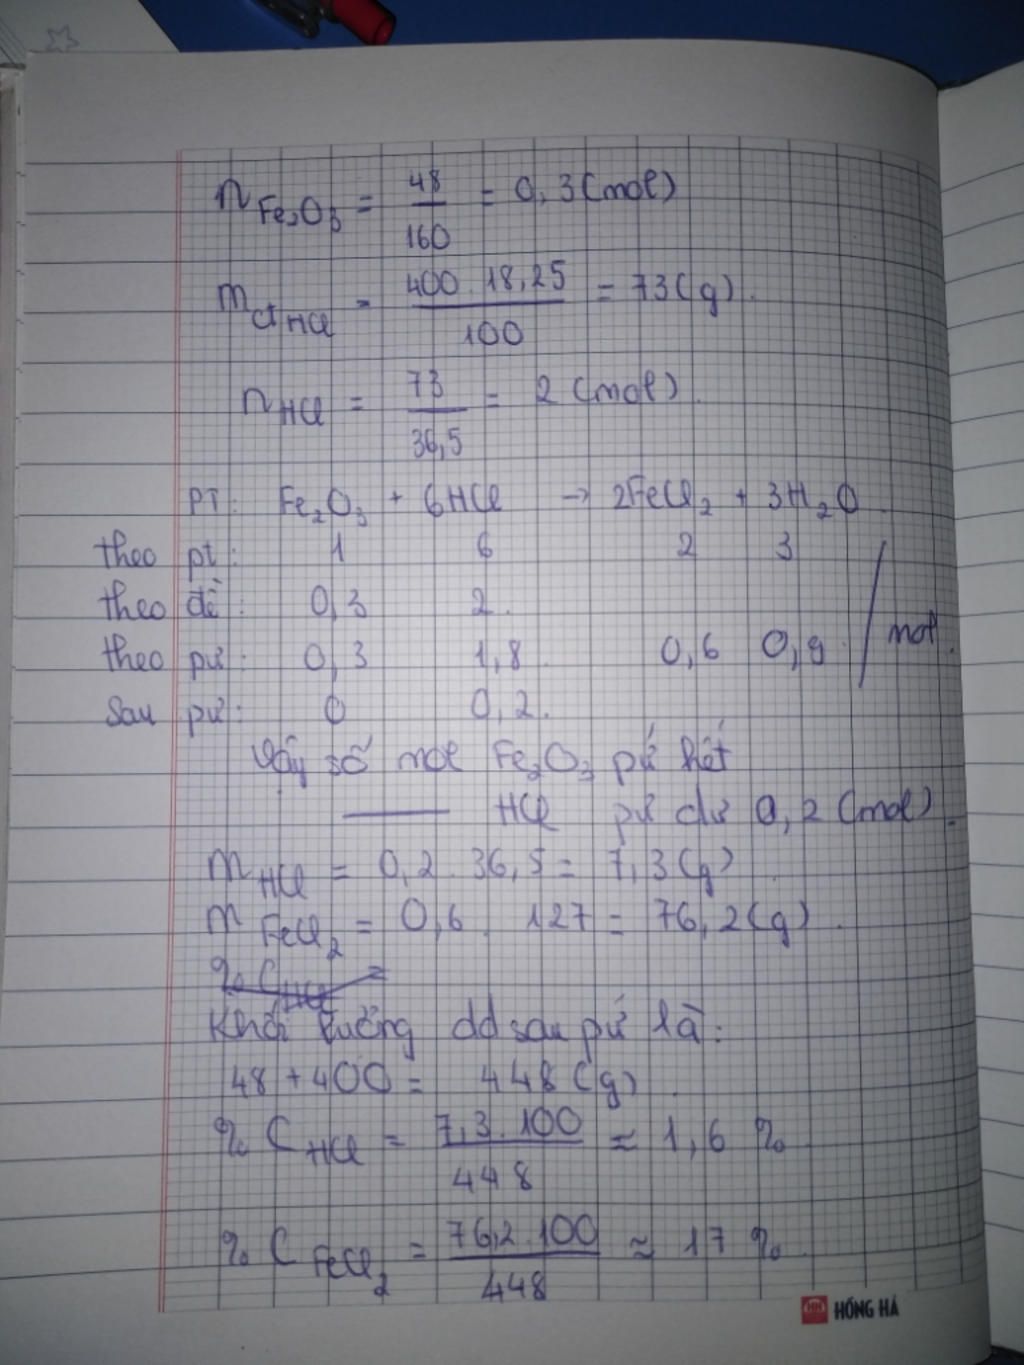 nFe2O3 = 48/160 = 0,3 (mol)
mctHCl = 400.18,25/100 = 73 (g).
nHCl = 73/36,5 = 2 (mol).
PT: Fe2O3 + 6HCl → 2FeCl2 + 3H2O
theo pt: 1 6 2 3
theo đề: 0,3 2.
theo pứ: 0,3 1,8. 0,6 0,9 / mol.
Sau pứ: 0 0,2.
Vậy số mol Fe2O3 pứ hết
—— HCl pứ dư 0,2 (mol).
mHCl = 0,2.36,5 = 7,3 (g).
mFeCl2 = 0,6.127 = 76,2 (g).
% CHCl =
Khối lượng dd sau pứ là:
48 + 400 = 448 (g).
% CHCl = 7,3.100/448 ≈ 1,6 %
% CFeCl2 = 76,2.100/448 ≈ 17 %.
HH HỒNG HÀ